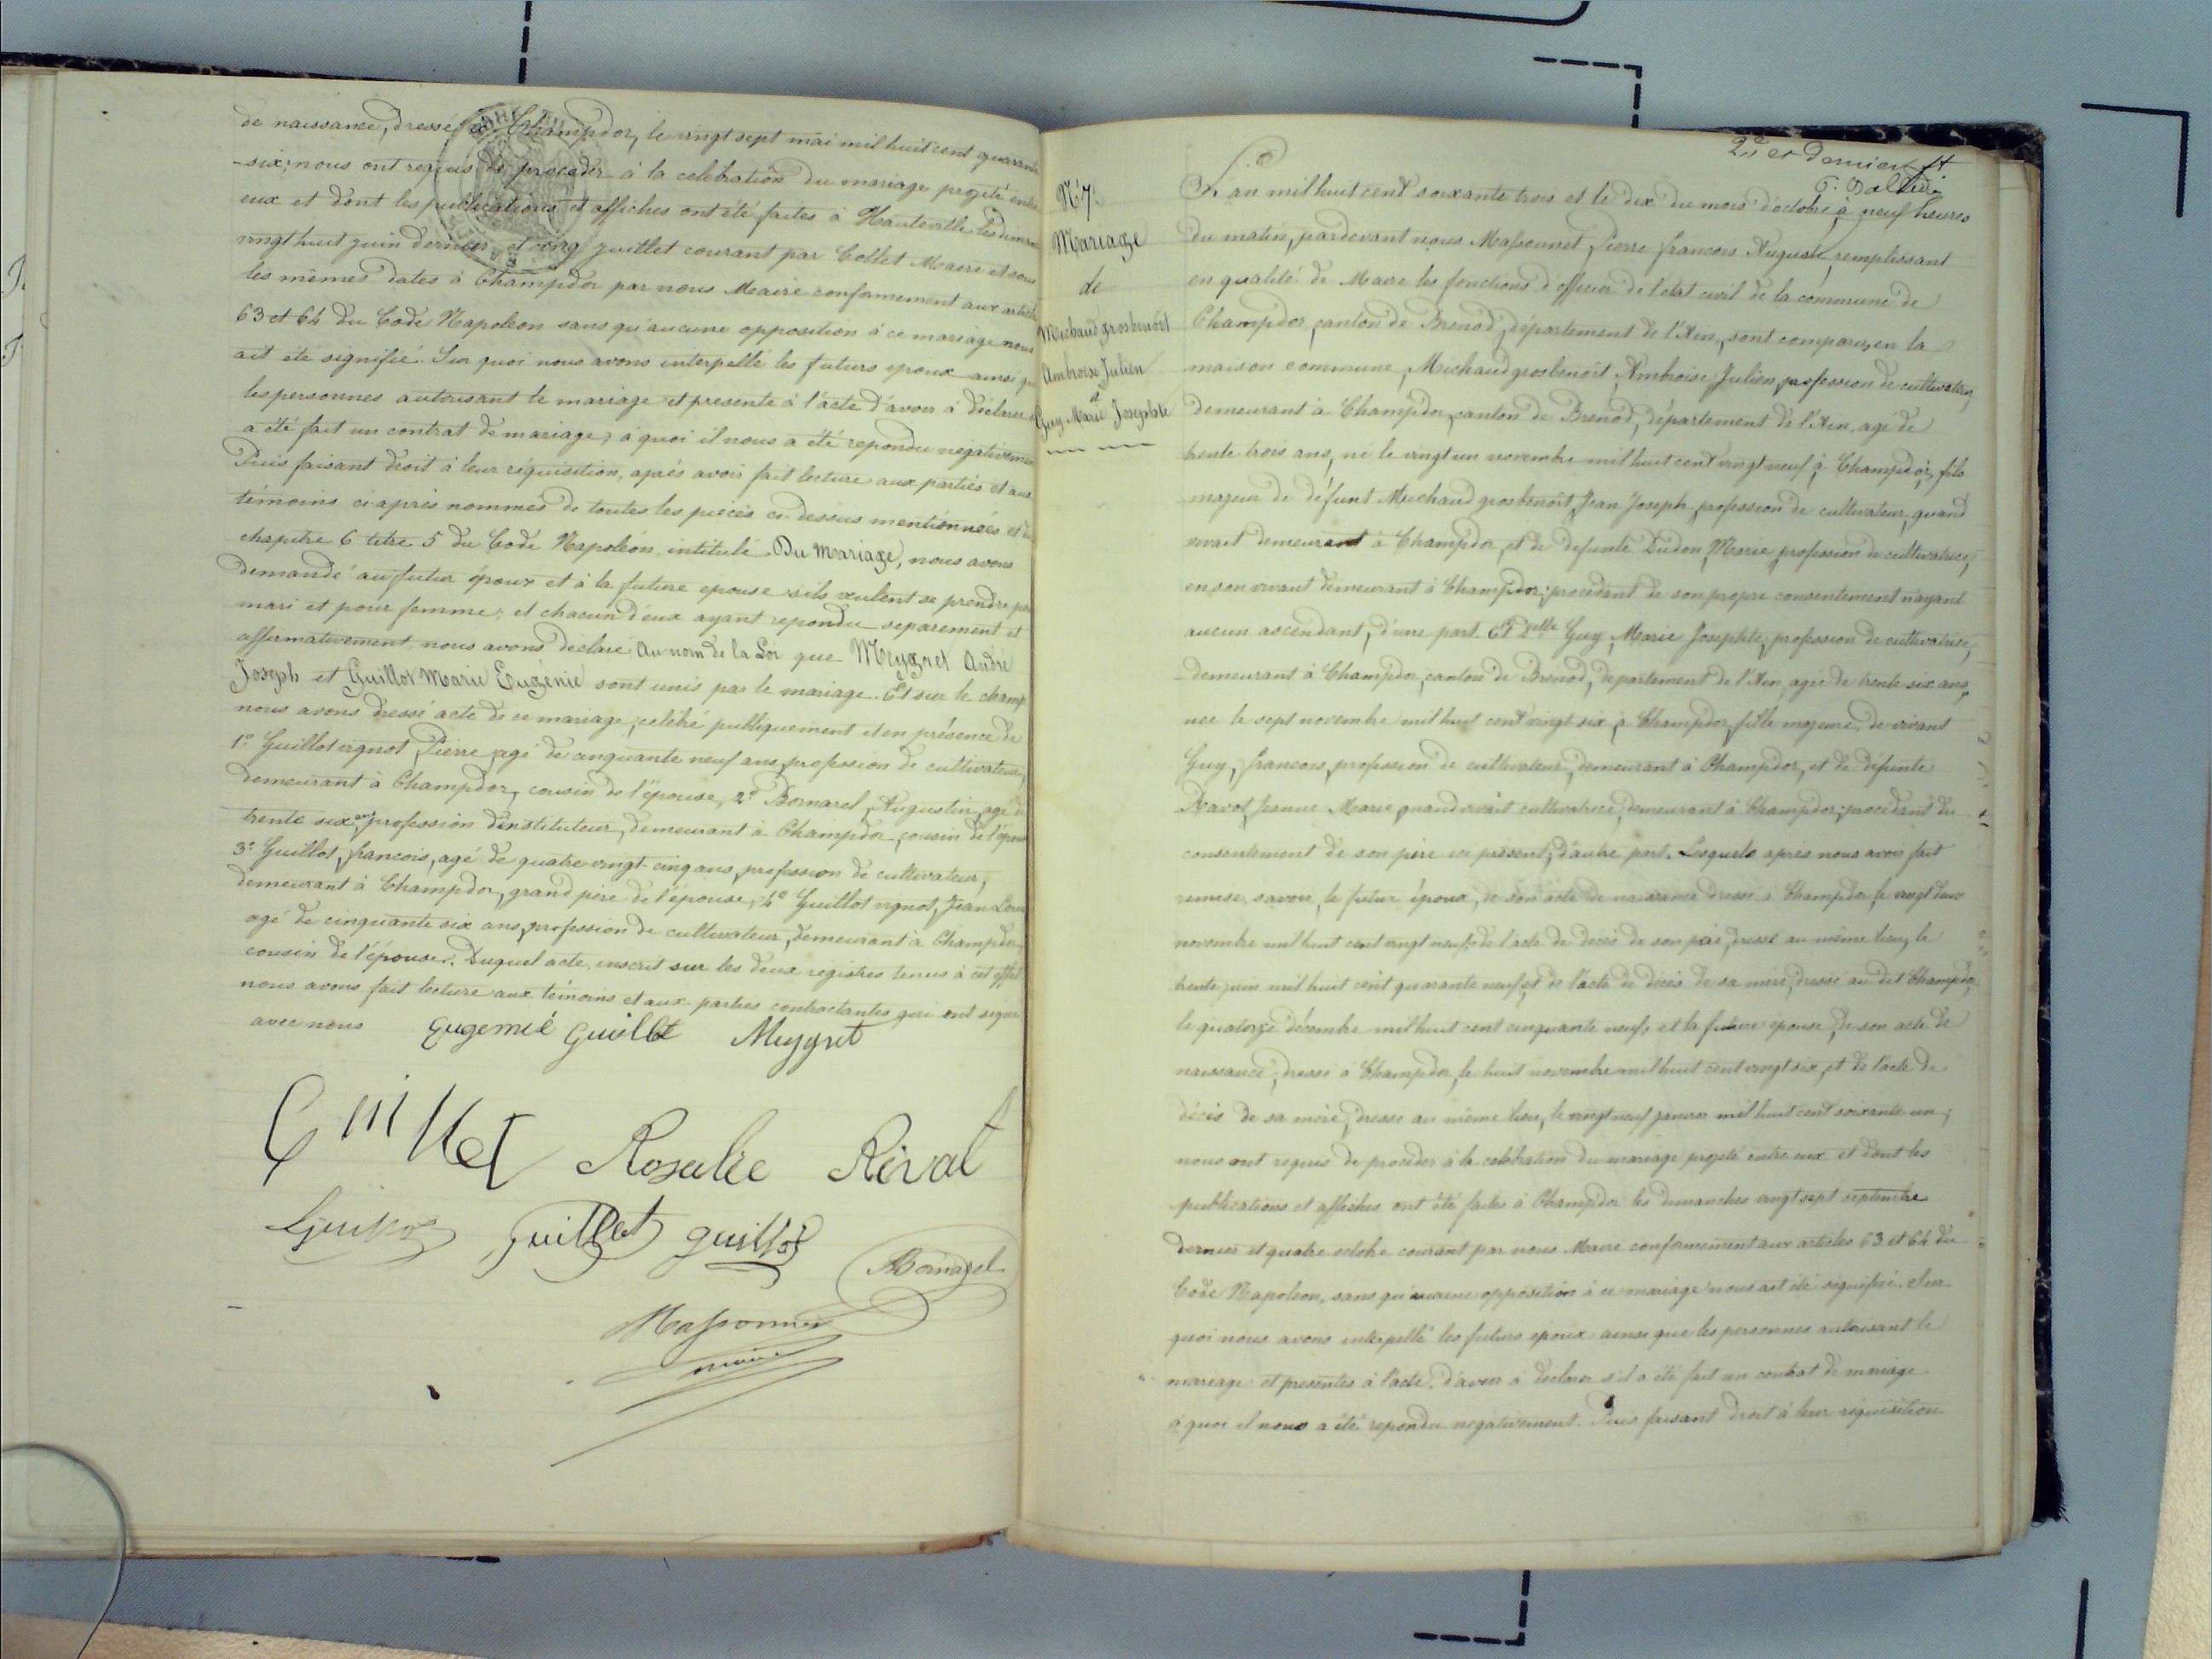 de naissance, dressé à Champdor, le vingt sept mai mil huit cent quarante
-six; nous ont requis de procéder à la celebration du mariage projeté entre
eux et dont les publications et affiches ont été faites à Hauteville les dimanches
vingt huit juin dernier et cinq juillet courant par Collet Maire et sous
les mêmes dates à Champdor par nous Maire conformement aux articles
63 et 64 du Code Napoleon sans qu'aucune opposition à ce mariage nous
ait été signifié. Sur quoi nous avons interpellé les futurs epoux ainsi que
les personnes autorisant le mariage et presente à l'acte d'avoir à déclarer
a été fait un contrat de mariage; à quoi il nous a été repondu négativement
Puis faisant droit à leur réquisition, aprés avoir fait lecture aux parties et aux
témoins ci-après nommés de toutes les pièces ci-dessus mentionnées et du
chapitre 6 titre 5 du Code Napoléon intitulé Du Mariage, nous avons
demandé au futur époux et à la future epouse s'ils veulent se prendre pour
mari et pour femme; et chacun d'eux ayant repondu separement et
affirmativement nous avons déclaré Au nom de la Loi que Meygret André
Joseph et Guillot Marie Eugénie sont unis par le mariage. Et sur le champ
nous avons dressé acte de ce mariage, celébré publiquement et en présence de
1º Guillot vignot, Pierre, agé de cinquante neuf ans, profession de cultivateur,
demeurant à Champdor, cousin de l'épouse, 2º Bornarel, Augustin, agé de
trente six ans, profession d'instituteur, demeurant à Champdor, cousin de l'épouse
3º Guillot, francois, agé de quatre vingt cinq ans, profession de cultivateur,
demeurant à Champdor, grand père de l'épouse, 4º Guillot vignot, Jean Louis
agé de cinquante six ans, profession de cultivateur, demeurant à Champdor
cousin de l'épouse. Duquel acte, inscrit sur les deux registres tenus à cet effet
nous avons fait lecture aux témoins et aux parties contractantes qui ont signé
avec nous Eugenié Guillot Meygret
Guillot Rosalie Réval
Guillot Guillot guillot
Bornarel
Massonnet
maire
2e et dernier ft
Nº 7
Mariage
de
Michaud grosbenoit
Ambroise Julien
et
Guy Marie Josephte
L'an mil huit cent soixante trois et le dix du mois d'octobre à neuf heures
du matin, pardevant nous Massonnet, Pierre francois Auguste, remplissant
en qualité de Maire les fonctions d'officier de l'état civil de la commune de
Champdor, canton de Brenod, département de l'Ain, sont comparus, en la
maison commune, Michaud grosbenoit Ambroise Julien, profession de cultivateur,
demeurant à Champdor, canton de Brenod, département de l'Ain, agé de
trente trois ans, né le vingt un novembre mil huit cent vingt neuf à Champdor, fils
majeur de défunt Michaud grosbenoit, Jean Joseph, profession de cultivateur, quand
vivait demeurant à Champdor, et de defunte Dudon, Marie, profession de cultivatrice,
en son vivant demeurant à Champdor; procédant de son propre consentement n'ayant
aucun ascendant, d'une part. Et Delle Guy, Marie Josephte, profession de cultivatrice,
demeurant à Champdor, canton de Brénod, département de l'Ain, agée de trente six ans,
née le sept novembre mil huit cent vingt six, à Champdor, fille majeure, de vivant
Guy, francois, profession de cultivateur, demeurant à Champdor, et de défunte
Jeanne Marie, quand vivait cultivatrice, demeurant à Champdor; procédant du
consentement de son père ici présent, d'autre part. Lesquels après nous avoir fait
remise, savoir, le futur époux, de son acte de naissance dressé à Champdor, le vingt deux
novembre mil huit cent vingt neuf, de l'acte de décès de son père, dressé au même lieu, le
trente juin mil huit cent quarante neuf et de l'acte de décès de sa mère, dressé au dit Champdor,
le quatorze décembre mil huit cent cinquante neuf, et la future épouse, de son acte de
naissance, dressé à Champdor, le huit novembre mil huit cent vingt six, et de l'acte de
décès de sa mère, dressé au même lieu, le vingt neuf janvier mil huit cent soixante un;
nous ont requis de procéder à la celébration du mariage projeté entre eux et dont les
publications et affiches ont été faites à Champdor les dimanches vingt sept septembre
dernier et quatre octobre courant par nous Maire conformement aux articles 63 et 64 du
Code Napoléon, sans qu'aucune opposition à ce mariage nous ait été signifié. Sur
quoi nous avons interpellé les futurs époux ainsi que les personnes autorisant le
mariage et presentes à l'acte, d'avoir à déclarer s'il a été fait un contrat de mariage
à quoi il nous a été repondu negativement. Puis faisant droit à leur réquisition